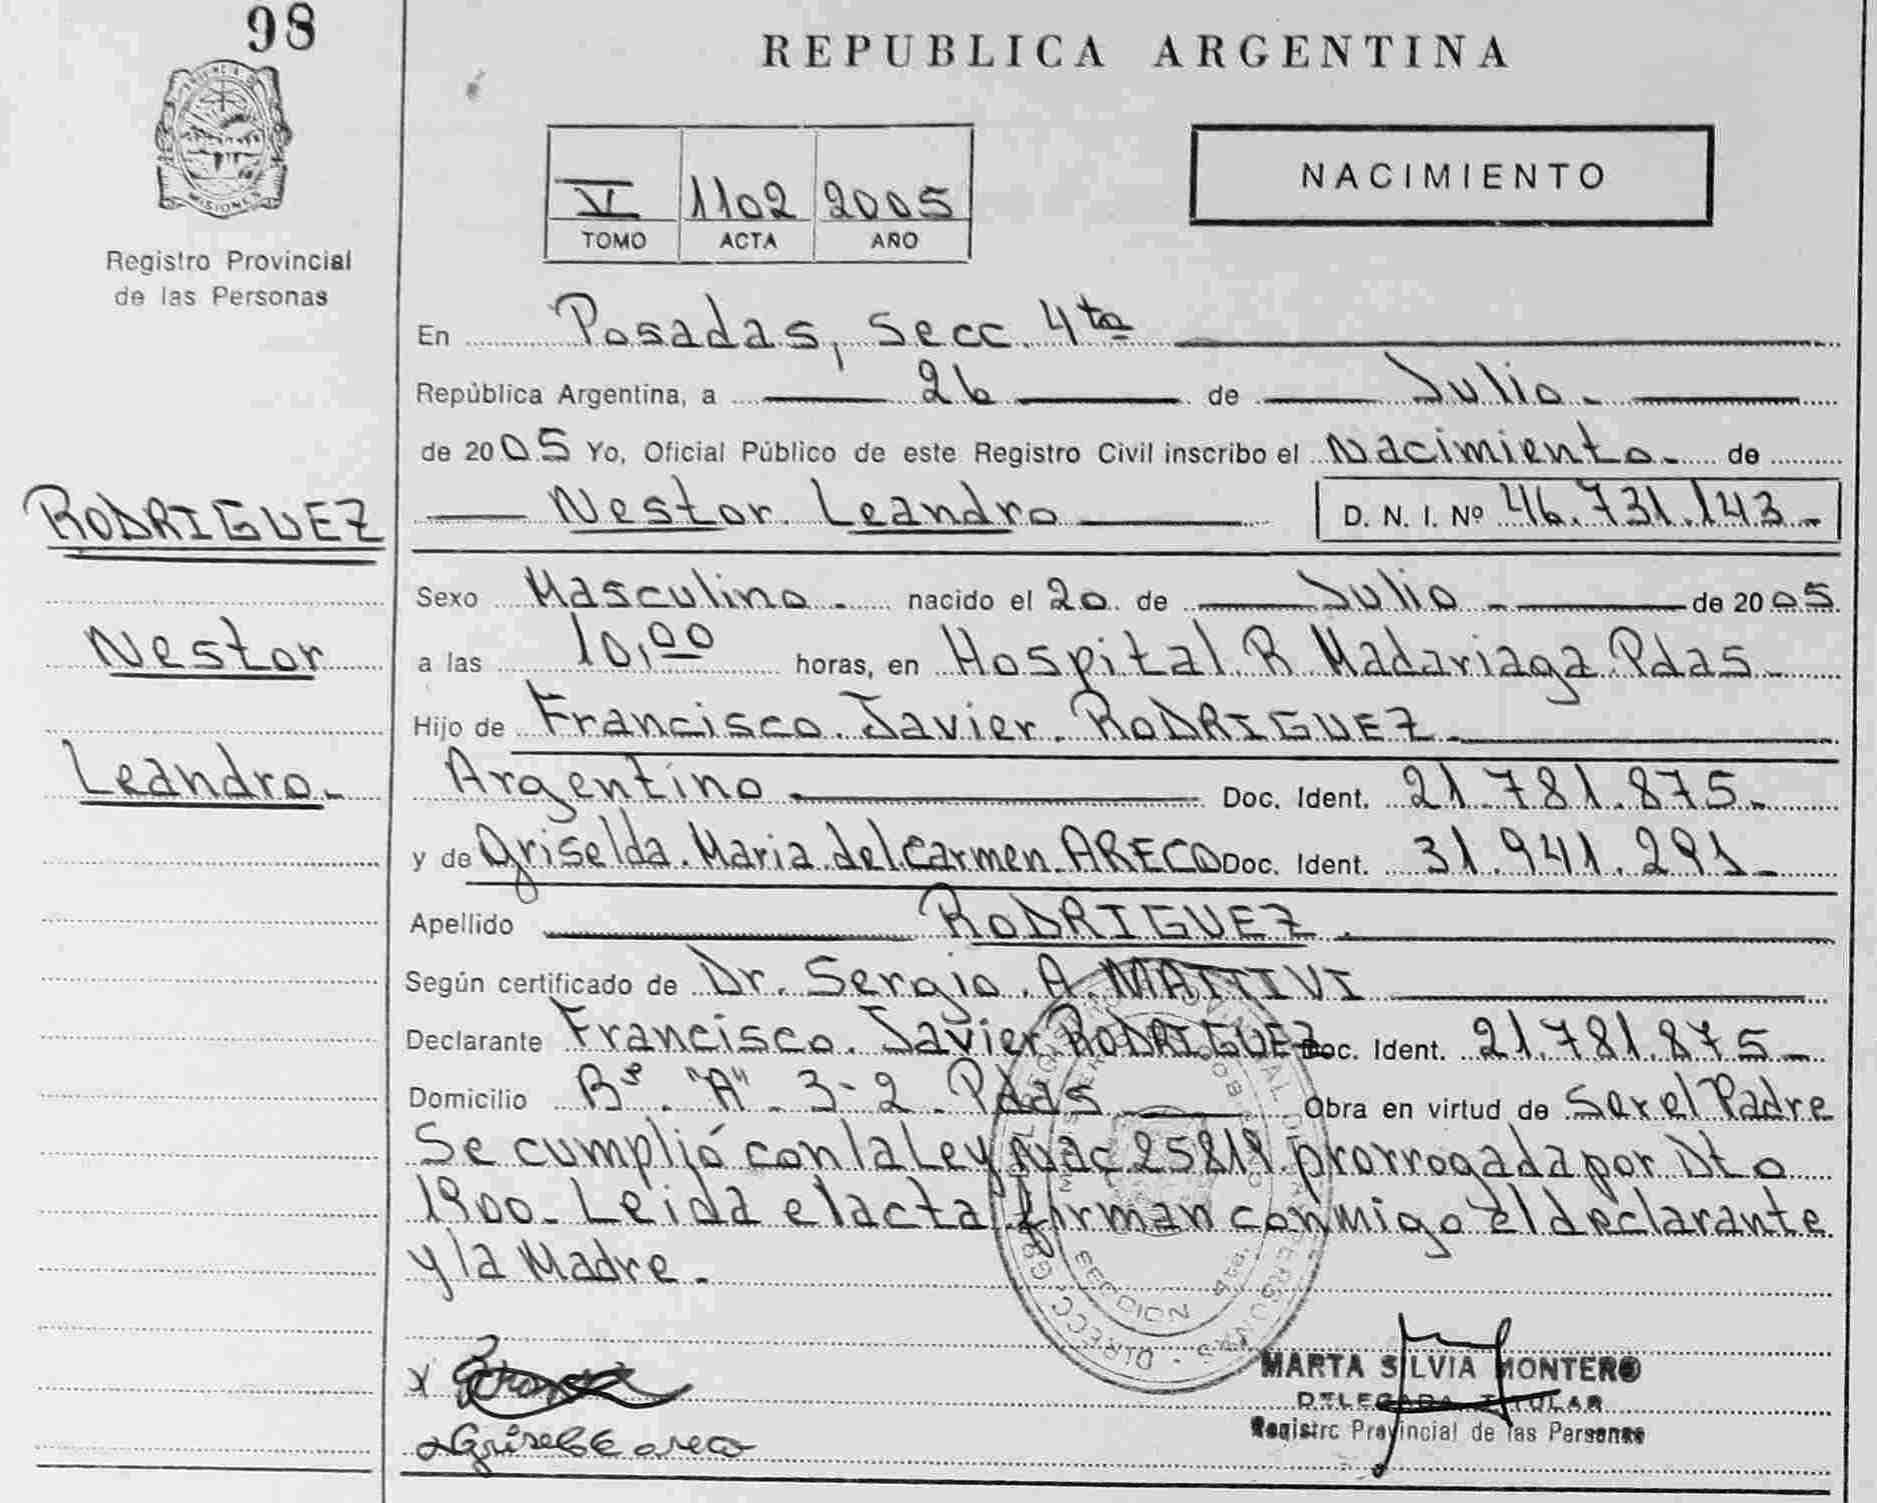 98
MISIONES
Registro Provincial
de las Personas
RODRIGUEZ
Nestor
Leandro.-
REPUBLICA ARGENTINA
VI 1102 2005
TOMO ACTA AÑO
NACIMIENTO
En Posadas, Secc. 4ta
República Argentina, a 26 de Julio.-
de 2005 Yo, Oficial Público de este Registro Civil inscribo el Nacimiento.- de
Nestor Leandro D. N. I. Nº 46.731.143.-
Sexo Masculino.- nacido el 20 de Julio.- de 2005.
a las 10,00 horas, en Hospital R Madariaga Pdas.-
Hijo de Francisco Javier RODRIGUEZ.-
Argentino Doc. Ident. 21.781.875.-
y de Griselda Maria del Carmen ARECO Doc. Ident. 31.941.291.-
Apellido RODRIGUEZ.
Según certificado de Dr. Sergio A. MATTIVI
Declarante Francisco Javier RODRIGUEZ Doc. Ident. 21.781.875.-
Domicilio Bº "A" 3-2 Pdas Obra en virtud de Ser el Padre
Se cumplió con la Ley Nac 25819 prorrogada por Dto
1900.- Leida el acta firman conmigo el declarante
y la Madre.-
SECCION 4ta.
X
Griselda areco
MARTA SILVIA MONTERO
DELEGADA TITULAR
Registro Provincial de las Personas